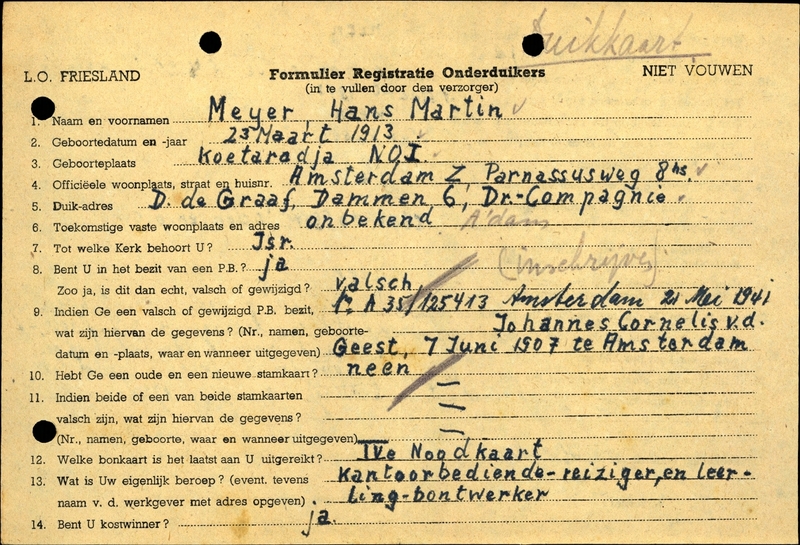 Duikkaart
L.O. FRIESLAND Formulier Registratie Onderduikers NIET VOUWEN
(in te vullen door den verzorger)
1. Naam en voornamen Meyer, Hans Martin
2. Geboortedatum en -jaar 23 Maart 1913
3. Geboorteplaats Koetaradja N.O.I.
4. Officiëele woonplaats, straat en huisnr. Amsterdam Z Parnassusweg 8 hs.
5. Duik-adres D. de Graaf, Dammen 6, Dr.-Compagnie
6. Toekomstige vaste woonplaats en adres onbekend A'dam
7. Tot welke Kerk behoort U? Isr.
8. Bent U in het bezit van een P.B.? ja (inschrijver)
Zoo ja, is dit dan echt, valsch of gewijzigd? valsch
9. Indien Ge een valsch of gewijzigd P.B. bezit, 1e A 35/125413 Amsterdam 21 Mei 1941
wat zijn hiervan de gegevens? (Nr., namen, geboorte- Johannes Cornelis v.d.
datum en -plaats, waar en wanneer uitgegeven) Geest, 7 Juni 1907 te Amsterdam
10. Hebt Ge een oude en een nieuwe stamkaart? neen
11. Indien beide of een van beide stamkaarten —
valsch zijn, wat zijn hiervan de gegevens? —
(Nr., namen, geboorte, waar en wanneer uitgegeven) —
12. Welke bonkaart is het laatst aan U uitgereikt? IVe Noodkaart
13. Wat is Uw eigenlijk beroep? (event. tevens Kantoorbediende-reiziger, en leer-
naam v. d. werkgever met adres opgeven) ling-bontwerker
14. Bent U kostwinner? ja.